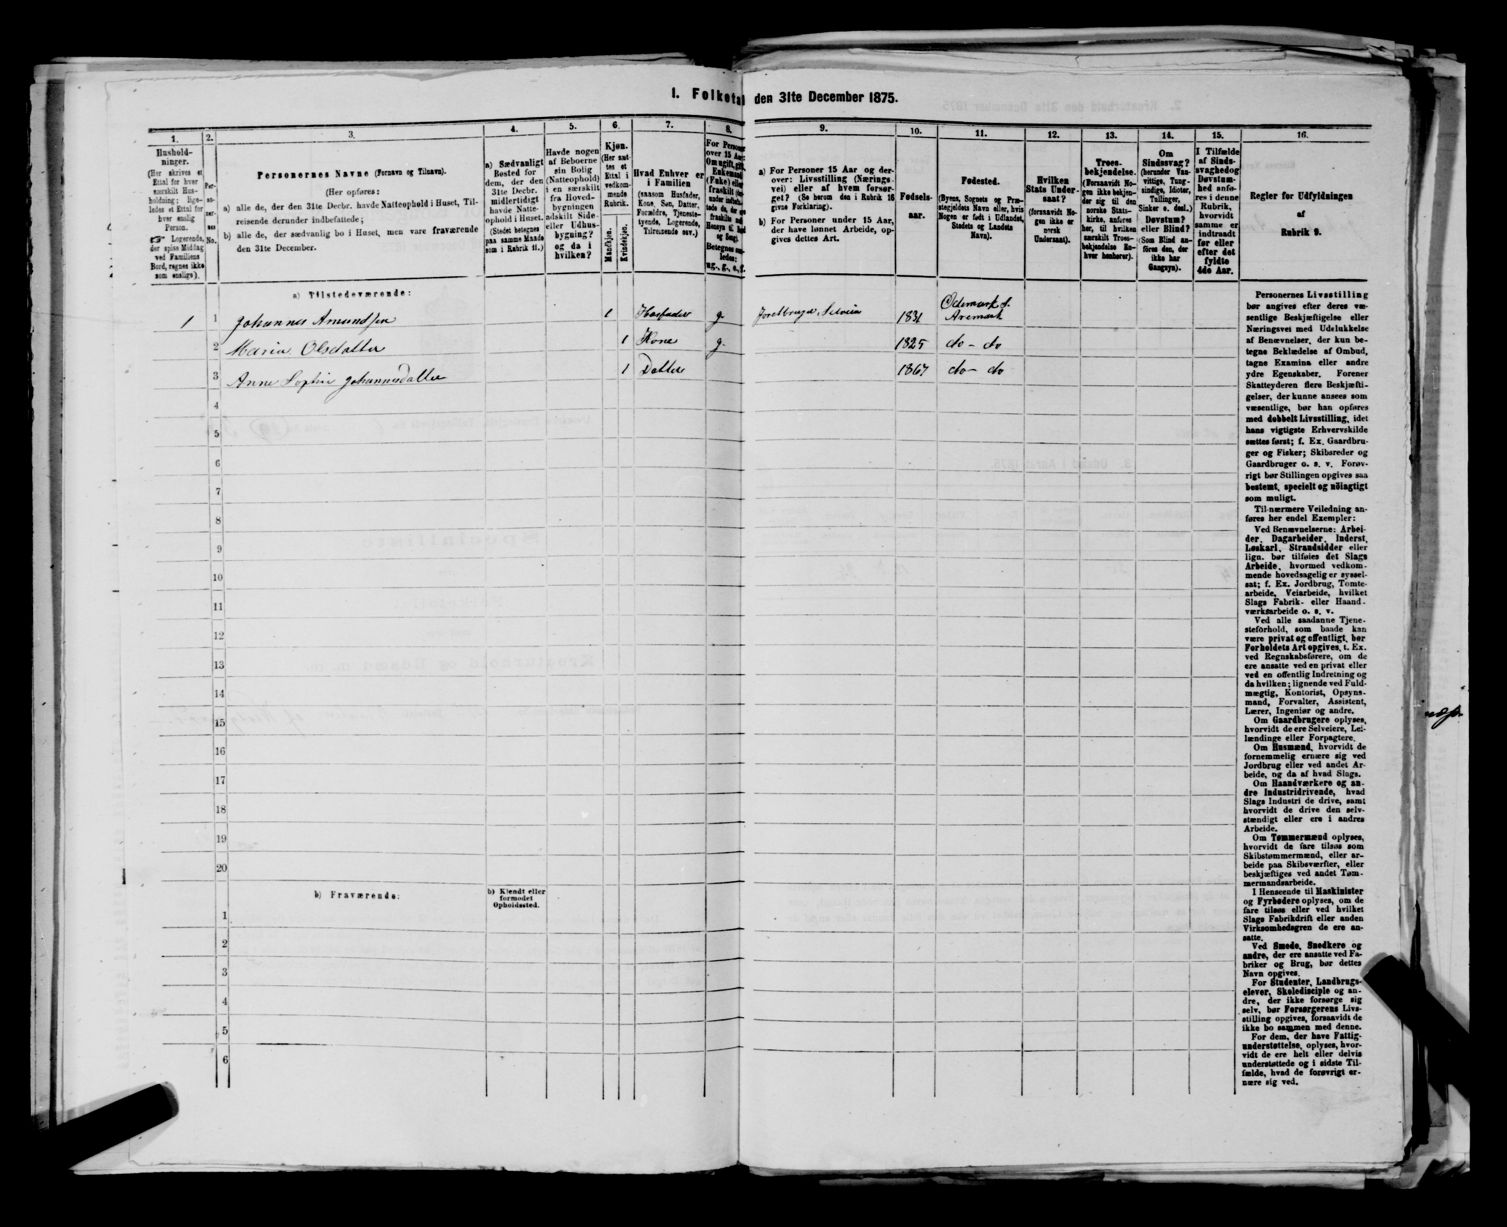 I. Folketal den 31te December 1875.
1.
2.
3.
4.
5.
6.
7.
8.
9.
10.
11.
12.
13.
14.
15.
16.
Hushold-
ninger.
(Her skrives et
Ettal for hver
særskilt Hus-
holdning; lige-
ledes et Ettal for
hver enslig
Person.
☞ Logerende,
der spise Middag
ved Familiens
Bord, regnes ikke
som enslige).
Per-
No.
Personernes Navne (Fornavn og Tilnavn).
(Her opføres:
a) alle de, der den 31te Decbr. havde Natteophold i Huset, Til-
reisende derunder indbefattede;
b) alle de, der sædvanlig bo i Huset, men vare fraværende
den 31te December.
a) Sædvanligt
Bosted for
dem, der den
31te Decbr.
midlertidigt
havde Natte-
ophold i Huset.
(Stedet betegnes
paa samme Maade
som i Rubrik 11.)
Havde nogen
af Beboerne
sin Bolig
(Natteophold)
i en særskilt
fra Hoved-
bygningen
adskilt Side-
eller Udhus-
bygning?
og da i
hvilken?
Kjøn.
(Her sæt-
tes et
Ettal i
vedkom-
mende
Rubrik.
Mandkjøn.
Kvindekjøn.
Hvad Enhver er
i Familien
(saasom Husfader,
Kone, Søn, Datter,
Forældre, Tjeneste-
tyende, Logerende,
Tilreisende osv.)
For Personer
over 15 Aar:
Om ugift, gift,
Enkemand
(Enke) eller
fraskilt
a) For Personer 15 Aar og der-
over: Livsstilling (Nærings-
vei) eller af hvem forsør-
get? (Se herom den i Rubrik 16
givne Forklaring).
b) For Personer under 15 Aar,
der have lønnet Arbeide, op-
gives dettes Art.
Fødsels-
aar.
Fødested.
(Byens, Sognets og Præ-
stegjeldets Navn eller, hvis
Nogen er født i Udlandet,
Stedets og Landets
Navn).
Hvilken
Stats Under-
saat?
(forsaavidt No-
gen ikke er
norsk
Undersaat).
Troes-
bekjendelse.
(Forsaavidt No-
gen ikke bekjen-
der sig til den
norske Stats-
kirke, anføres
her, til hvilken
særskilt Troes-
bekjendelse En-
hver henhører).
Om
Sindssvag?
(herunder Van-
vittige, Tung-
sindige, Idioter,
Tullinger,
Sinker o. desl.),
Døvstum?
eller Blind?
(Som Blind an-
føres den, der
ikke har
Gangsyn).
I Tilfælde
af Sinds-
svaghed og
Døvstum-
hed anfø-
res i denne
Rubrik,
hvorvidt
samme er
indtraadt
før eller
efter det
fyldte
4de Aar.
Regler for Udfyldningen
af
Rubrik 9.
a) Tilstedeværende:
1 1 Johannes Amundsen 1 Husfader g. Jordbruger, Selveier 1831 Odemark s. Aremark
2 Maria Olsdatter 1 Kone g. 1825 do - do
3 Anne Sophie Johannesdatter 1 Datter 1867 do - do
4
5
6
7
8
9
10
11
12
13
14
15
16
17
18
19
20
b) Fraværende:
b) Kjendt eller
formodet
Opholdssted.
1
2
3
4
5
6
Personernes Livsstilling
bør angives efter deres væ-
sentlige Beskjæftigelse eller
Næringsvei med Udelukkelse
af Benævnelser, der kun be-
tegne Beklædelse af Ombud,
tagne Examina eller andre
ydre Egenskaber. Forener
Skatteyderen flere Beskjæfti-
gelser, der kunne ansees som
væsentlige, bør han opføres
med dobbelt Livsstilling, idet
hans vigtigste Erhvervskilde
sættes først; f. Ex. Gaardbru-
ger og Fisker; Skibsreder og
Gaardbruger o. s. v. Forøv-
rigt bør Stillingen opgives saa
bestemt, specielt og nöiagtigt
som muligt.
Til nærmere Veiledning an-
føres her endel Exempler:
Ved Benævnelserne: Arbei-
der, Dagarbeider, Inderst,
Løskarl, Strandsidder eller
lign. bør tilføies det Slags
Arbeide, hvormed vedkom-
mende hovedsagelig er syssel-
sat; f. Ex. Jordbrug, Tomte-
arbeide, Veiarbeide, hvilket
Slags Fabrik- eller Haand-
værksarbeide o. s. v.
Ved alle saadanne Tjene-
steforhold, som baade kan
være privat og offentligt, bør
Forholdets Art opgives, t. Ex.
ved Regnskabsførere, om de
ere ansatte ved en privat eller
ved en offentlig Indretning og
da hvilken; lignende ved Fuld-
mægtig, Kontorist, Opsyns-
mand, Forvalter, Assistent,
Lærer, Ingeniør og andre.
Om Gaardbrugere oplyses,
hvorvidt de ere Selveiere, Lei-
lændinge eller Forpagtere.
Om Husmænd, hvorvidt de
fornemmelig ernære sig ved
Jordbrug eller ved andet Ar-
beide, og da af hvad Slags.
Om Haandværkere og an-
dre Industridrivende, hvad
Slags Industri de drive, samt
hvorvidt de drive den selv-
stændigt eller ere i andres
Arbeide.
Om Tømmermænd oplyses,
hvorvidt de fare tilsøs som
Skibstømmermænd, eller ar-
beide paa Skibsværfter, eller
beskjæftiges ved andet Tøm-
mermandsarbeide.
I Henseende til Maskinister
og Fyrbødere oplyses, om de
fare tilsøs eller ved hvilket
Slags Fabrikdrift eller anden
Virksomhedsgren de ere an-
satte.
Ved Smede, Snedkere og
andre, der ere ansatte ved Fa-
briker og Brug, bør dettes
Navn opgives.
For Studenter, Landbrugs-
elever, Skoledisciple og an-
dre, der ikke forsørge sig
selv, bør Forsørgerens Livs-
stilling opgives, forsaavidt de
ikke bo sammen med denne.
For dem, der have Fattig-
understøttelse, oplyses, hvor-
vidt de ere helt eller delvis
understøttede og i sidste Til-
fælde, hvad de forøvrigt er-
nære sig ved.